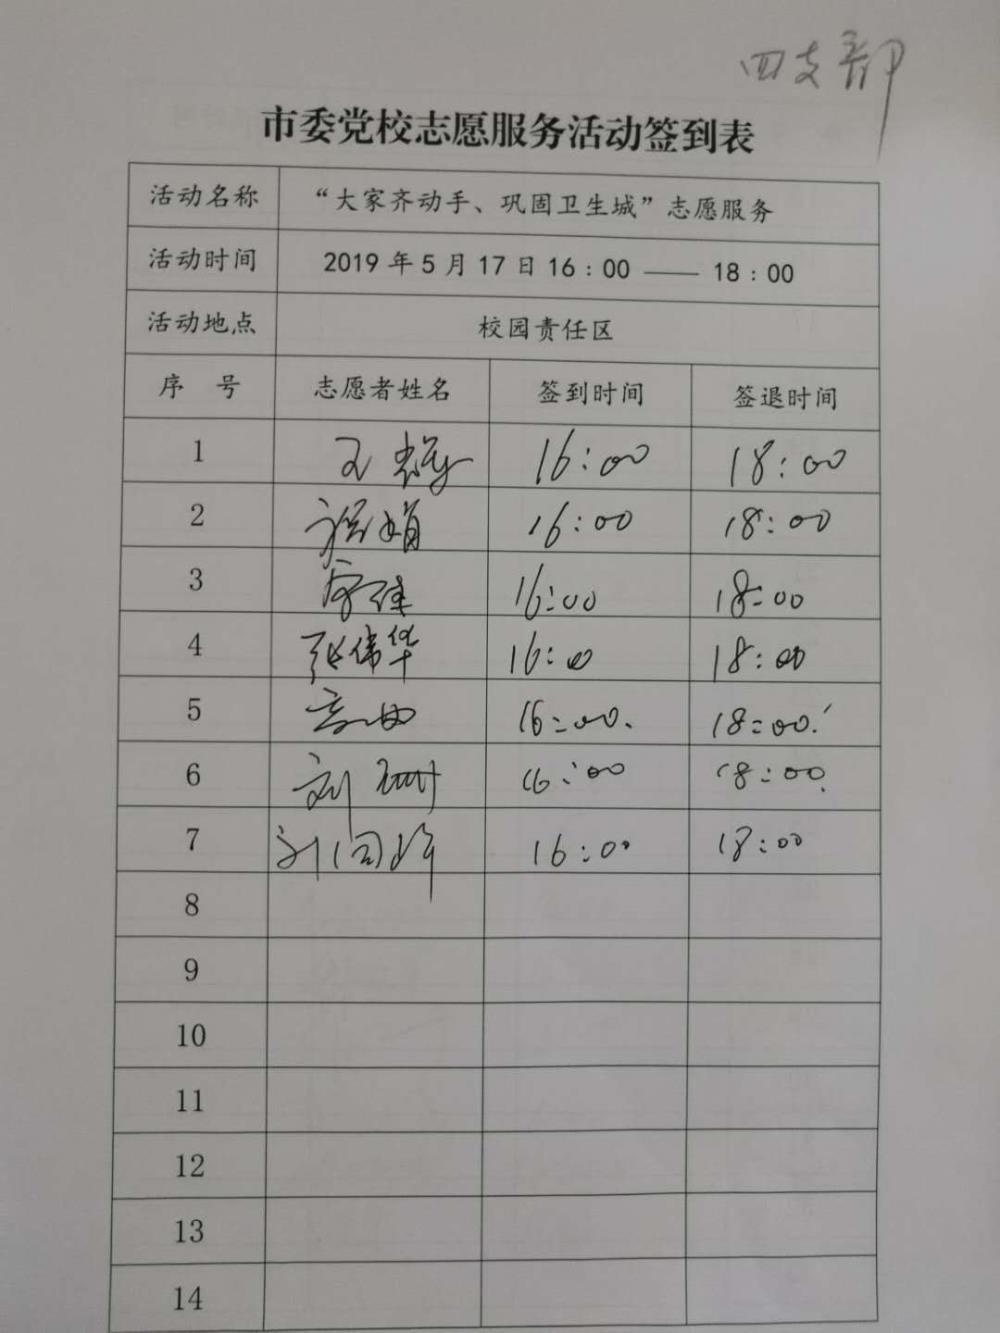 四支部
市委党校志愿服务活动签到表
活动名称 “大家齐动手、巩固卫生城”志愿服务
活动时间 2019年5月17日16:00——18:00
活动地点 校园责任区
序 号 志愿者姓名 签到时间 签退时间
1 16:00 18:00
2 娟 16:00 18:00
3 16:00 18:00
4 张伟华 16:00 18:00
5 16:00. 18:00.
6 刘 16:00 18:00.
7 刘 16:00 18:00
8
9
10
11
12
13
14